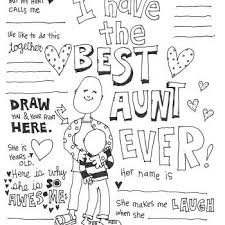 BUT MY AUNT
CALLS ME
I have
the
BEST
AUNT
EVER!
We like to do this
together
DRAW
YOU & YOUR AUNT
HERE.
SHE IS
YEARS
OLD.
Her name is
Here is why
she is SO
AWESOME!
She makes me LAUGH
when she